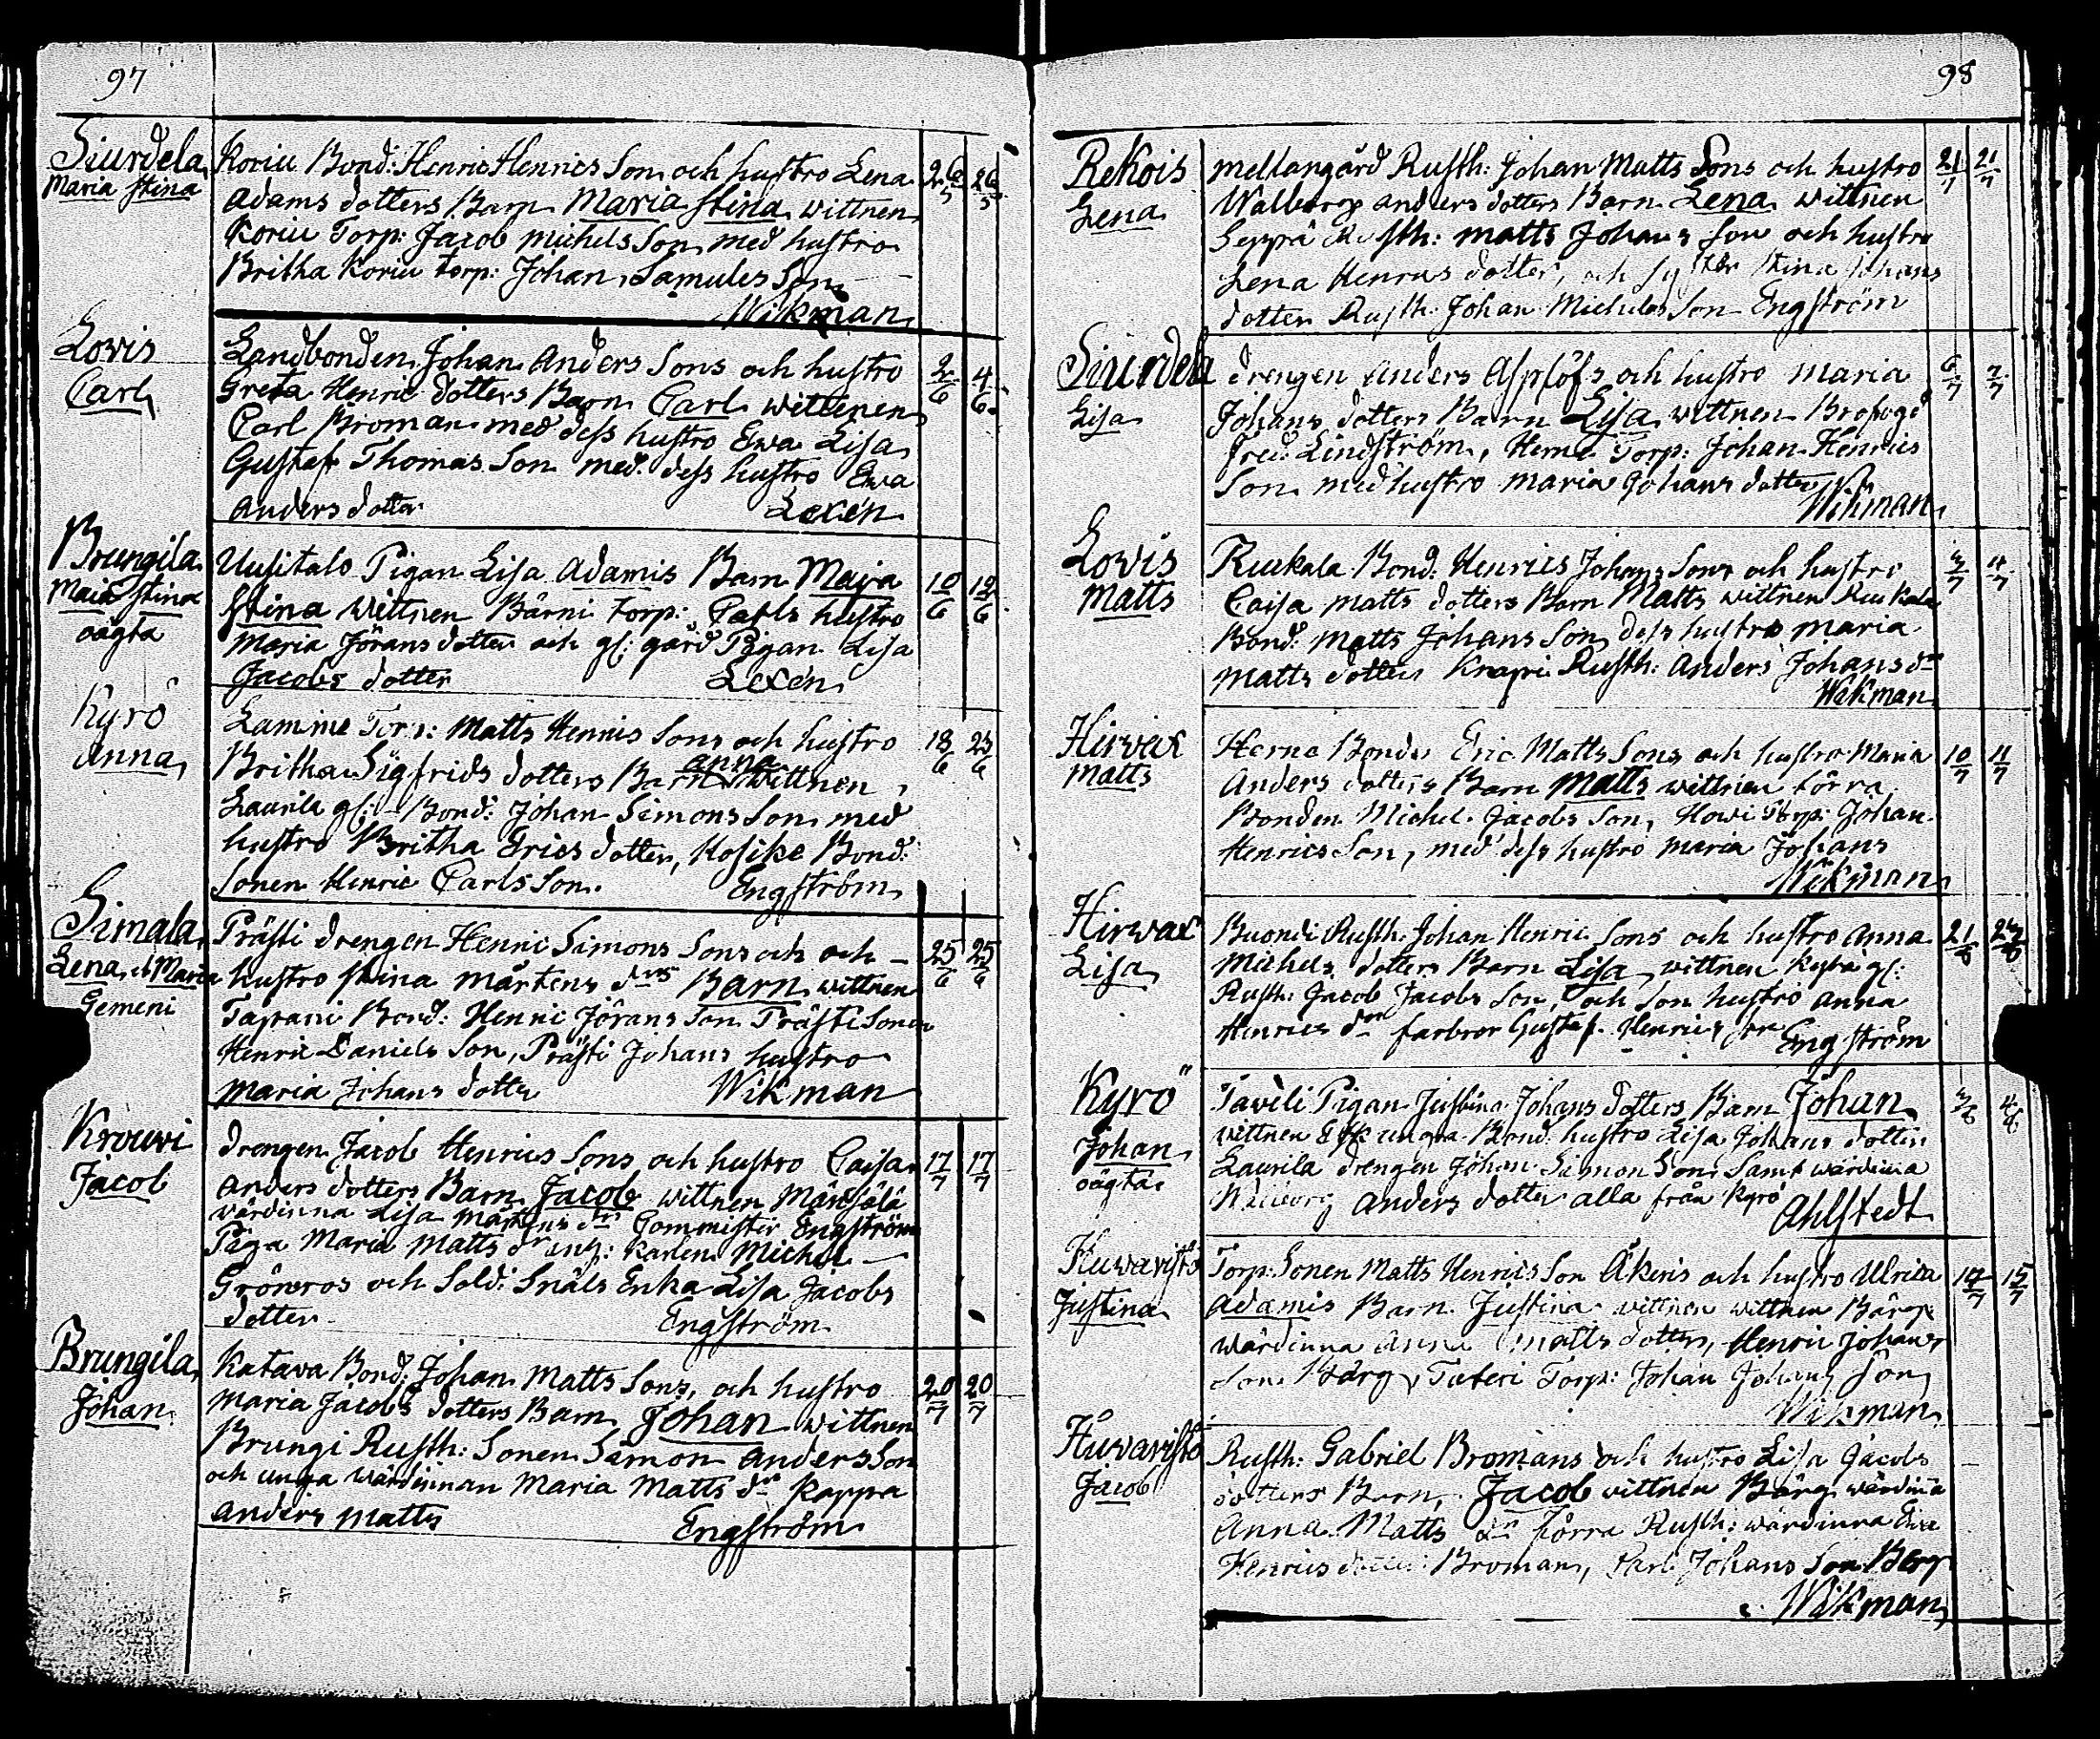 97
Siurdela Koriu Bond: Henric Henrics Son och hustro Lena 26/5 26/5
Maria Stina Adams dotters Barn Maria Stina wittnen
Koriu Torp: Jacob Michels Son med hustro
Britha Koriu torp: Johan Samuels Son
Wikman
Lovis Landbonden Johan Anders Sons och hustro 2/6 4/6
Carl Greta Henric dotters Barn Carl wittnen
Carl Broman med dess hustro Ewa Lisa
Gustaf Thomas Son med dess hustro Ewa
Anders dotter Lexén
Brungila Uusitalo Pigan Lisa Adamis Barn Maja 10/6 12/6
Maia Stina Stina wittnen Bärni torp: Carls hustro
oägta Maria Jörans dotter och gl: gård Pigan Lisa
Jacobs dotter Lexén
Kyrö Lamine Torp: Matts Henrics Sons och hustro 18/6 23/6
Anna Britha Sigfrids dotters Barn Anna wittnen
Laurila gl: Bond: Johan Simons Son med
hustro Britha Erics dotter, Kosike Bond:
Sonen Henric Carls Son. Engström
Simala Prästi drengen Henric Simons Sons och och 25/6 25/6
Lena et Maria hustro Stina Mårtens drs Barn wittnen
Gemeni Tapani Bond: Henric Jörans Son Prästi Sonen
Henric Daniels Son, Prästi Johans hustro
Maria Johans dotter Wikman
Krouvi drengen Jacob Henrics Sons och hustro Caisa 17/7 17/7
Jacob Anders dotters Barn Jacob wittnen Mänsälä
värdinna Lisa Mårtens dr Commister Engström
Piga Maria Matts dr karlen Michel
Grönroos och Sold: Snäls Enka Lisa Jacobs
dotter Engström
Brungila Katava Bond: Johan Matts Sons, och hustro 20/7 20/7
Johan Maria Jacobs dotters Barn Johan wittnen
Brungi Rusth: Sonen Simon Anders Son
och unga wärdinnan Maria Matts dr Kappa
Anders Matts Engström
98
Rekois mellangård Rusth: Johan Matts Sons och hustro 21/7 21/7
Lena Walborg Anders dotters Barn Lena wittnen
Seppä Rusth: Matts Johans Son och hustro
Lena Henrics dotter, och Syster Stina Johans
dotter Rusth: Johan Michels Son Engström
Siurdela drengen Anders Asplöfs och hustro Maria 6/7 7/7
Lisa Johans dotters Barn Lisa wittnen Brofogd
Fred: Lindström, Herne Torp: Johan Henrics
Son med hustro Maria Johans dotter
Wikman
Lovis Ruskala Bond: Henrics Johans Sons och hustro 3/7 4/7
Matts Caisa Matts dotters Barn Matts wittnen Ruskala
Bond: Matts Johans Son dess hustro Maria
Matts dotter Krapi Rusth: Anders Johans dr
Wikman
Hirvax Herne Bonde Eric Matts Sons och hustro Maria 10/7 11/7
Matts Anders dotters Barn Matts wittnen förra
Bonden Michel Jacobs Son, Howi Torp: Johan
Henrics Son, med dess hustro Maria Johans
Wikman
Hirvax Buondi Rusth: Johan Henric Sons och hustro Anna 21/6
Lisa Michels dotters Barn Lisa wittnen gl:
Rusth: Jacob Jacobs Son, och Son hustro Anna
Henrics dr farbror Gustaf Henrics Son Engström
Kyrö Taveli Pigan Justina Johans dotters Barn Johan
Johan wittnen unga Bond: hustro Lisa Johans dotter
oägta Laurila drengen Johan Simon Son Samt wärdinna
Walborg Anders dotter alla från Kyrö
Ahlstedt
Huvaristo Torp: Sonen Matts Henrics Son Åkeris och hustro Ulrica 15/7
Justina Adamis Barn Justina wittnen wittnen Bärg
wärdinna Anna Matts dotter, Henric Johans
Son Bärg, Tuteri Torp: Johan Johans Son
Wikman
Huvaristo Rusth: Gabriel Bromans och hustro Lisa Jacobs
Jacob dotters Barn, Jacob wittnen Bärg wärdina
Anna Matts dr förra Rusth: wärdinna Ewa
Henrics dotter Broman, Carl Johans Son Berg
Wikman